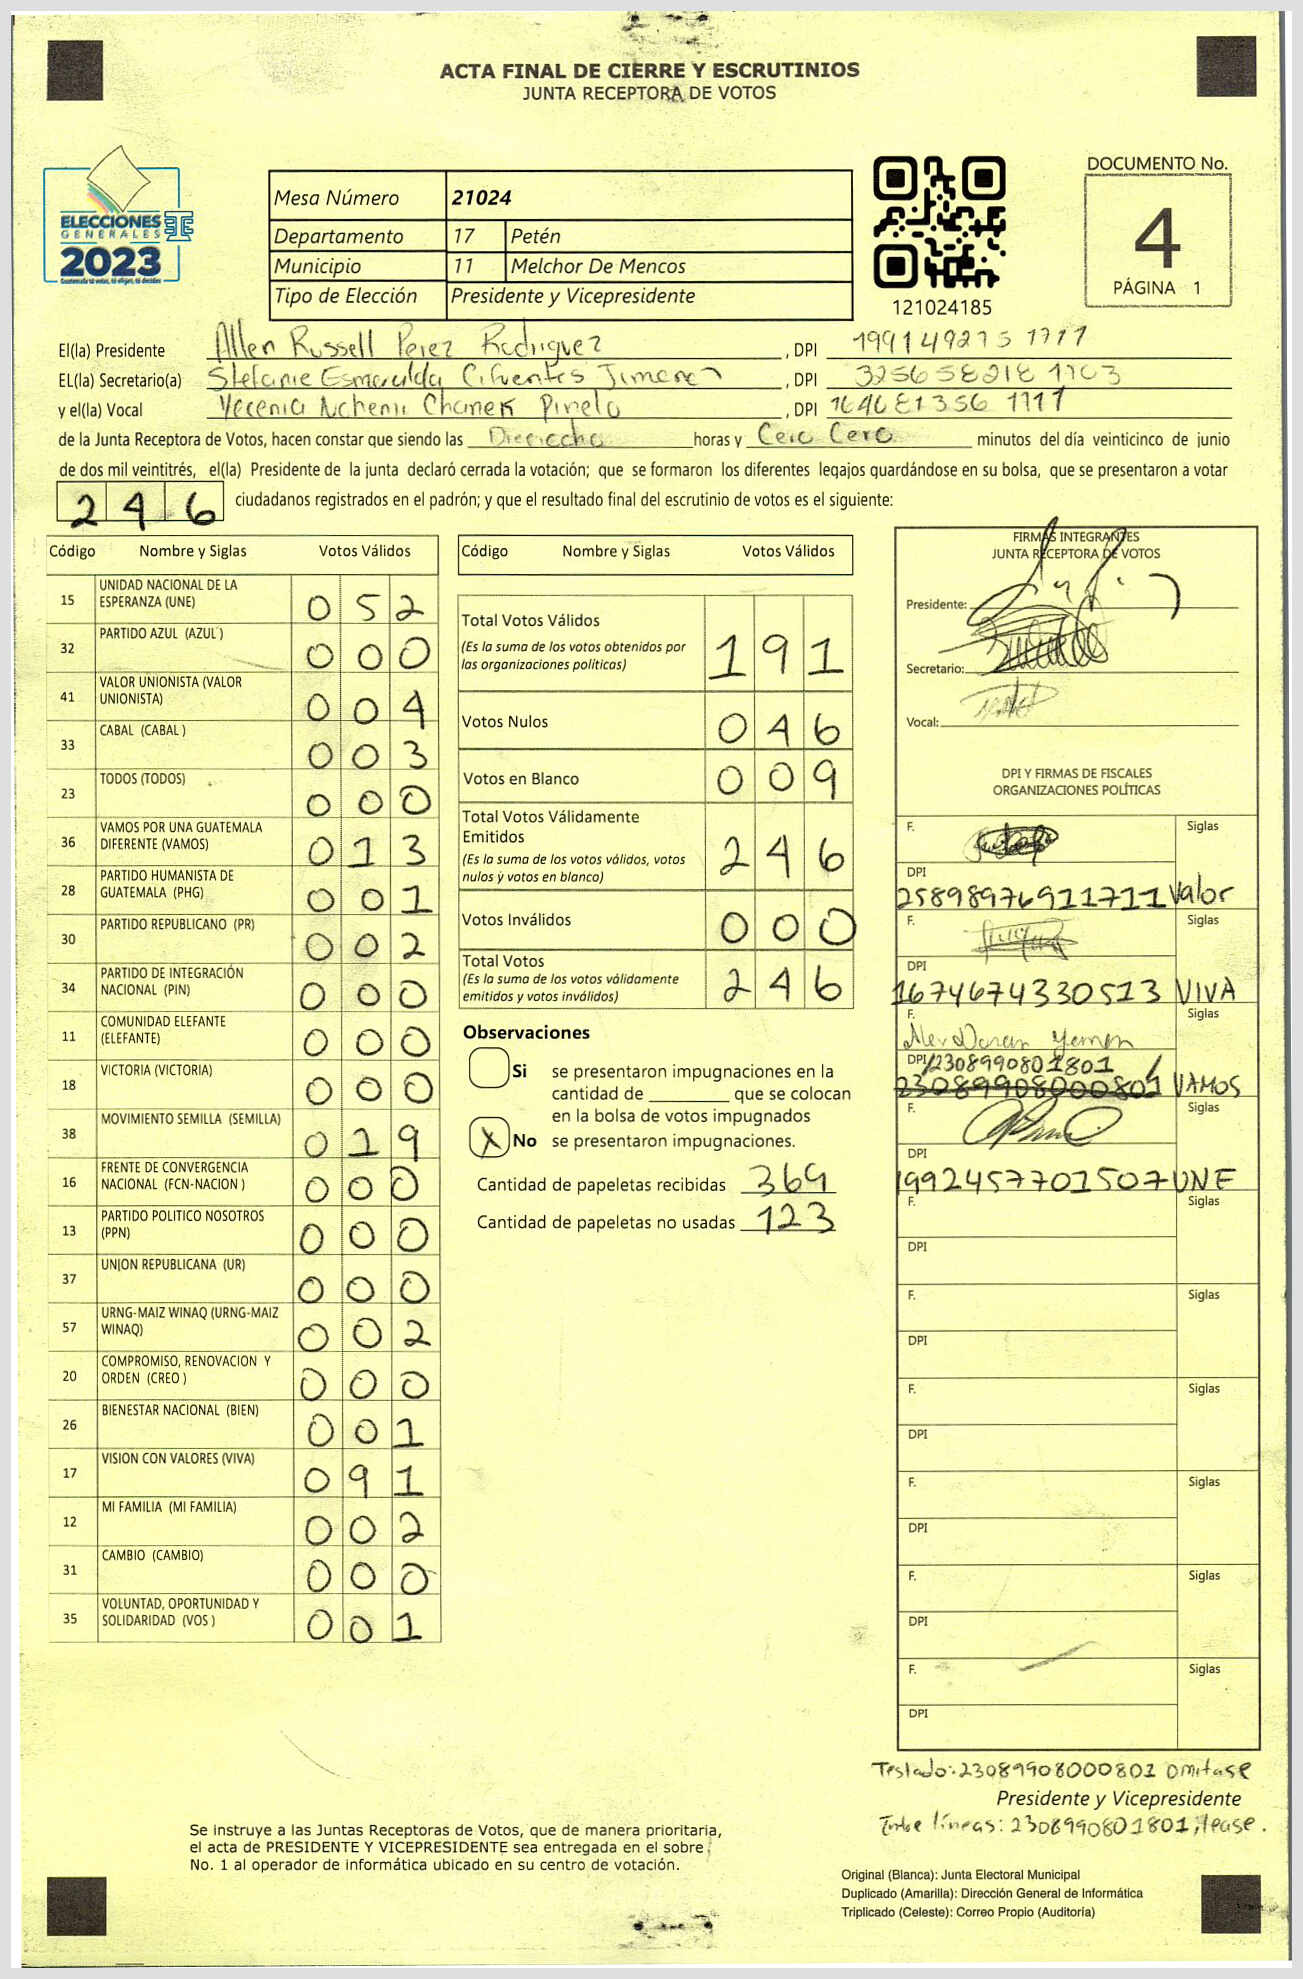 ACTA FINAL DE CIERRE Y ESCRUTINIOS
JUNTA RECEPTORA DE VOTOS
ELECCIONES
GENERALES
2023
Mesa Número 21024
Departamento 17 Petén
Municipio 11 Melchor De Mencos
Tipo de Elección Presidente y Vicepresidente
121024185
DOCUMENTO No.
4
PÁGINA 1
El(la) Presidente Allen Russell Perez Rodriguez, DPI 199149275 1711
EL(la) Secretario(a) Stefanie Esmeralda Cifuentes Jimenez, DPI 325658218 1703
y el(la) Vocal Chanek Pinelo, DPI 164681356 1711
de la Junta Receptora de Votos, hacen constar que siendo las Dieciocho horas y Cero Cero minutos del día veinticinco de junio
de dos mil veintitrés, el(la) Presidente de la junta declaró cerrada la votación; que se formaron los diferentes legajos guardándose en su bolsa, que se presentaron a votar
246 ciudadanos registrados en el padrón; y que el resultado final del escrutinio de votos es el siguiente:
Código Nombre y Siglas Votos Válidos
15 UNIDAD NACIONAL DE LA ESPERANZA (UNE) 052
32 PARTIDO AZUL (AZUL) 000
41 VALOR UNIONISTA (VALOR UNIONISTA) 004
33 CABAL (CABAL) 003
23 TODOS (TODOS) 000
36 VAMOS POR UNA GUATEMALA DIFERENTE (VAMOS) 013
28 PARTIDO HUMANISTA DE GUATEMALA (PHG) 001
30 PARTIDO REPUBLICANO (PR) 002
34 PARTIDO DE INTEGRACIÓN NACIONAL (PIN) 000
11 COMUNIDAD ELEFANTE (ELEFANTE) 000
18 VICTORIA (VICTORIA) 000
38 MOVIMIENTO SEMILLA (SEMILLA) 019
16 FRENTE DE CONVERGENCIA NACIONAL (FCN-NACION) 000
13 PARTIDO POLITICO NOSOTROS (PPN) 000
37 UNION REPUBLICANA (UR) 000
57 URNG-MAIZ WINAQ (URNG-MAIZ WINAQ) 002
20 COMPROMISO, RENOVACION Y ORDEN (CREO) 000
26 BIENESTAR NACIONAL (BIEN) 001
17 VISION CON VALORES (VIVA) 091
12 MI FAMILIA (MI FAMILIA) 002
31 CAMBIO (CAMBIO) 000
35 VOLUNTAD, OPORTUNIDAD Y SOLIDARIDAD (VOS) 001
Código Nombre y Siglas Votos Válidos
Total Votos Válidos 191
(Es la suma de los votos obtenidos por
las organizaciones políticas)
Votos Nulos 046
Votos en Blanco 009
Total Votos Válidamente
Emitidos 246
(Es la suma de los votos válidos, votos
nulos y votos en blanco)
Votos Inválidos 000
Total Votos 246
(Es la suma de los votos válidamente
emitidos y votos inválidos)
Observaciones
Si se presentaron impugnaciones en la
cantidad de ________ que se colocan
en la bolsa de votos impugnados
X No se presentaron impugnaciones.
Cantidad de papeletas recibidas 369
Cantidad de papeletas no usadas 123
FIRMAS INTEGRANTES
JUNTA RECEPTORA DE VOTOS
Presidente:
Secretario:
Vocal:
DPI Y FIRMAS DE FISCALES
ORGANIZACIONES POLÍTICAS
F. Siglas
DPI
2589897691711 Valor
F. Siglas
DPI
1674674330513 VIVA
F. Siglas
DPI 2308990801801
23089908000801 VAMOS
F. Siglas
DPI
1992457701507 UNE
F. Siglas
DPI
F. Siglas
DPI
F. Siglas
DPI
F. Siglas
DPI
F. Siglas
DPI
F. Siglas
DPI
Testado: 23089908000801 omitase
Presidente y Vicepresidente
Entre líneas: 2308990801801, lease.
Se instruye a las Juntas Receptoras de Votos, que de manera prioritaria,
el acta de PRESIDENTE Y VICEPRESIDENTE sea entregada en el sobre
No. 1 al operador de informática ubicado en su centro de votación.
Original (Blanca): Junta Electoral Municipal
Duplicado (Amarilla): Dirección General de Informática
Triplicado (Celeste): Correo Propio (Auditoría)